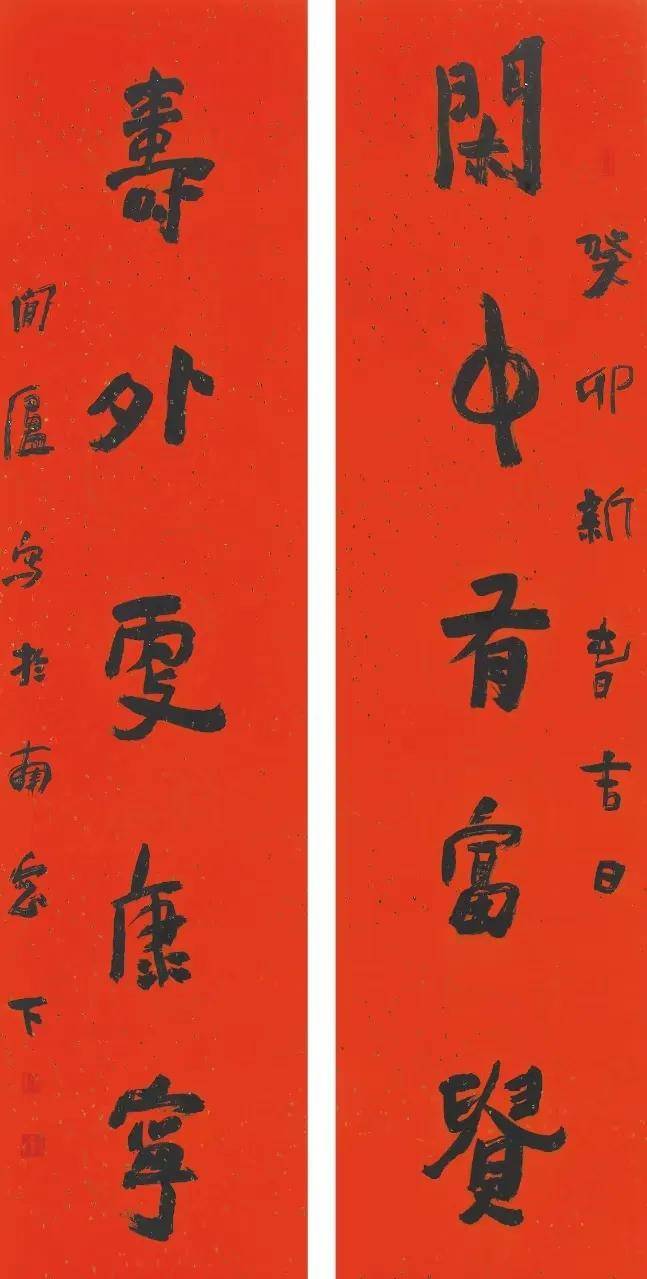 癸卯新春吉日
閑中有富貴
壽外更康寧
閒廬寫於南窗下